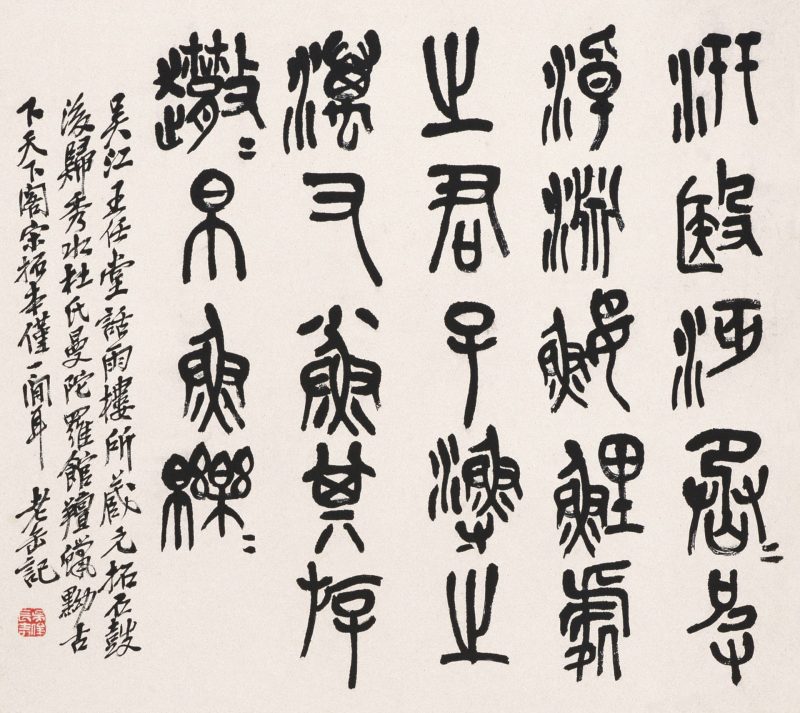 汧殹沔丞〻皮
淖淵鰋鯉處
之君子漁之
澫又小魚其斿
趣〻帛魚皪〻
吳江王任堂話雨樓所藏元拓石鼓
後歸秀水杜氏曼陀羅館氈蠟黝古
下天一閣宋拓本僅一間耳 老缶記